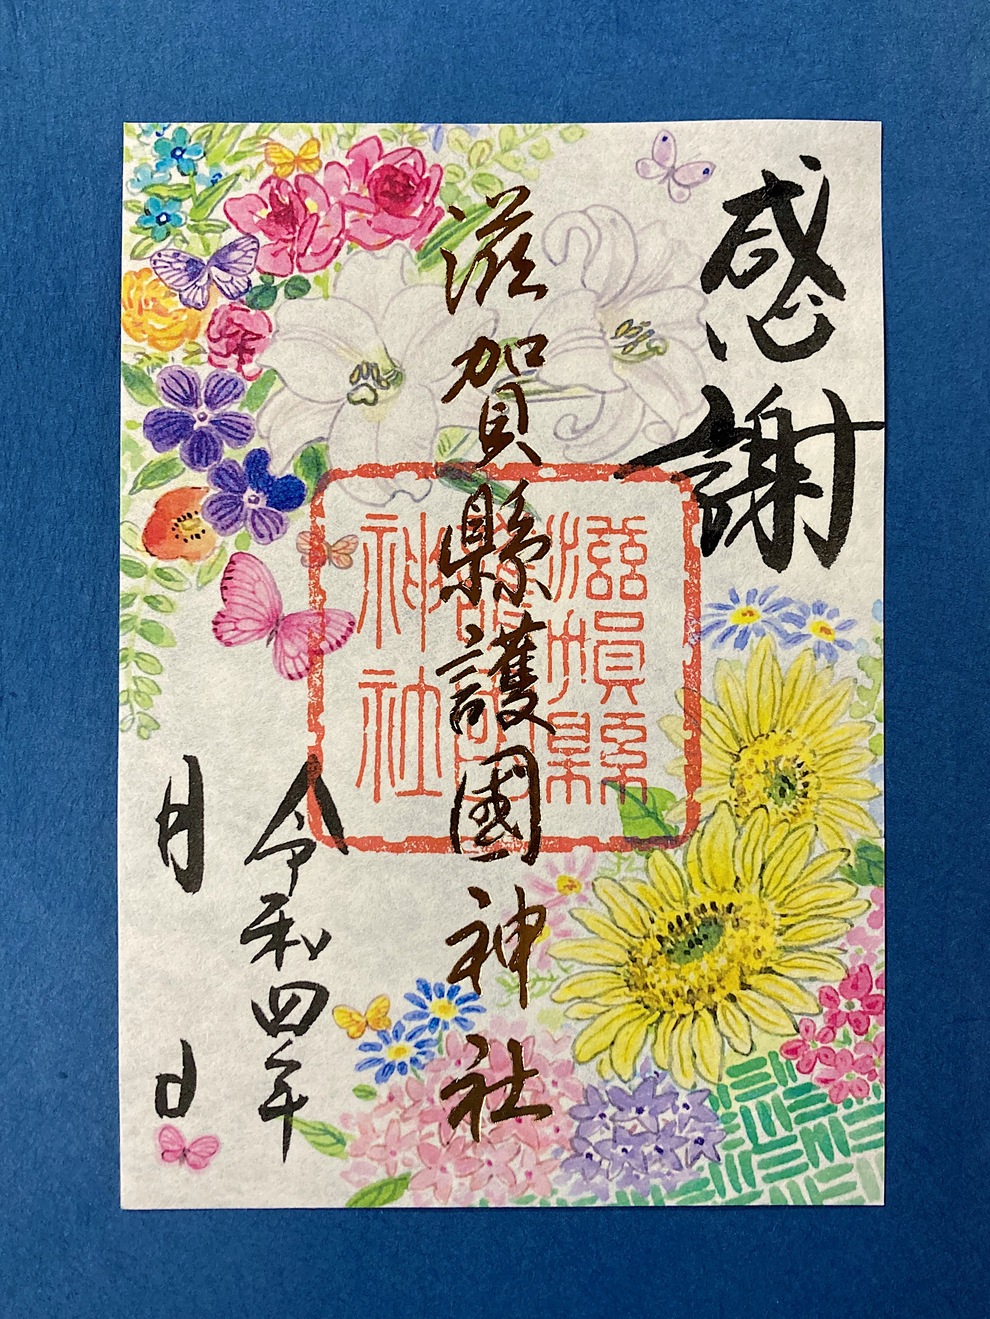 感謝
滋賀縣護國神社
滋賀縣
護國
神社
令和四年
月 日